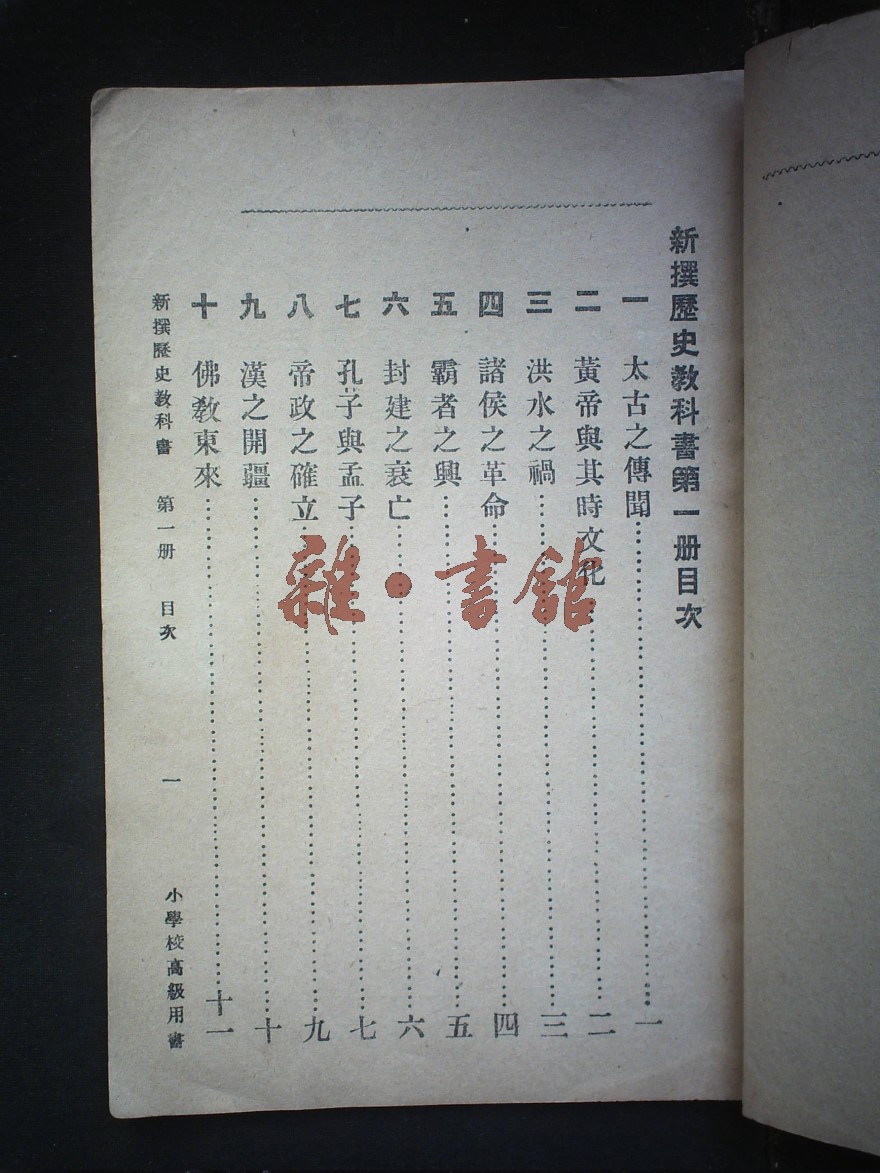 新撰歷史教科書第一册目次
一 太古之傳聞……一
二 黃帝與其時文化……二
三 洪水之禍……三
四 諸侯之革命……四
五 霸者之興……五
六 封建之衰亡……六
七 孔子與孟子……七
八 帝政之確立……九
九 漢之開疆……十
十 佛教東來……十一
新撰歷史教科書 第一册 目次 一 小學校高級用書
雜·書館